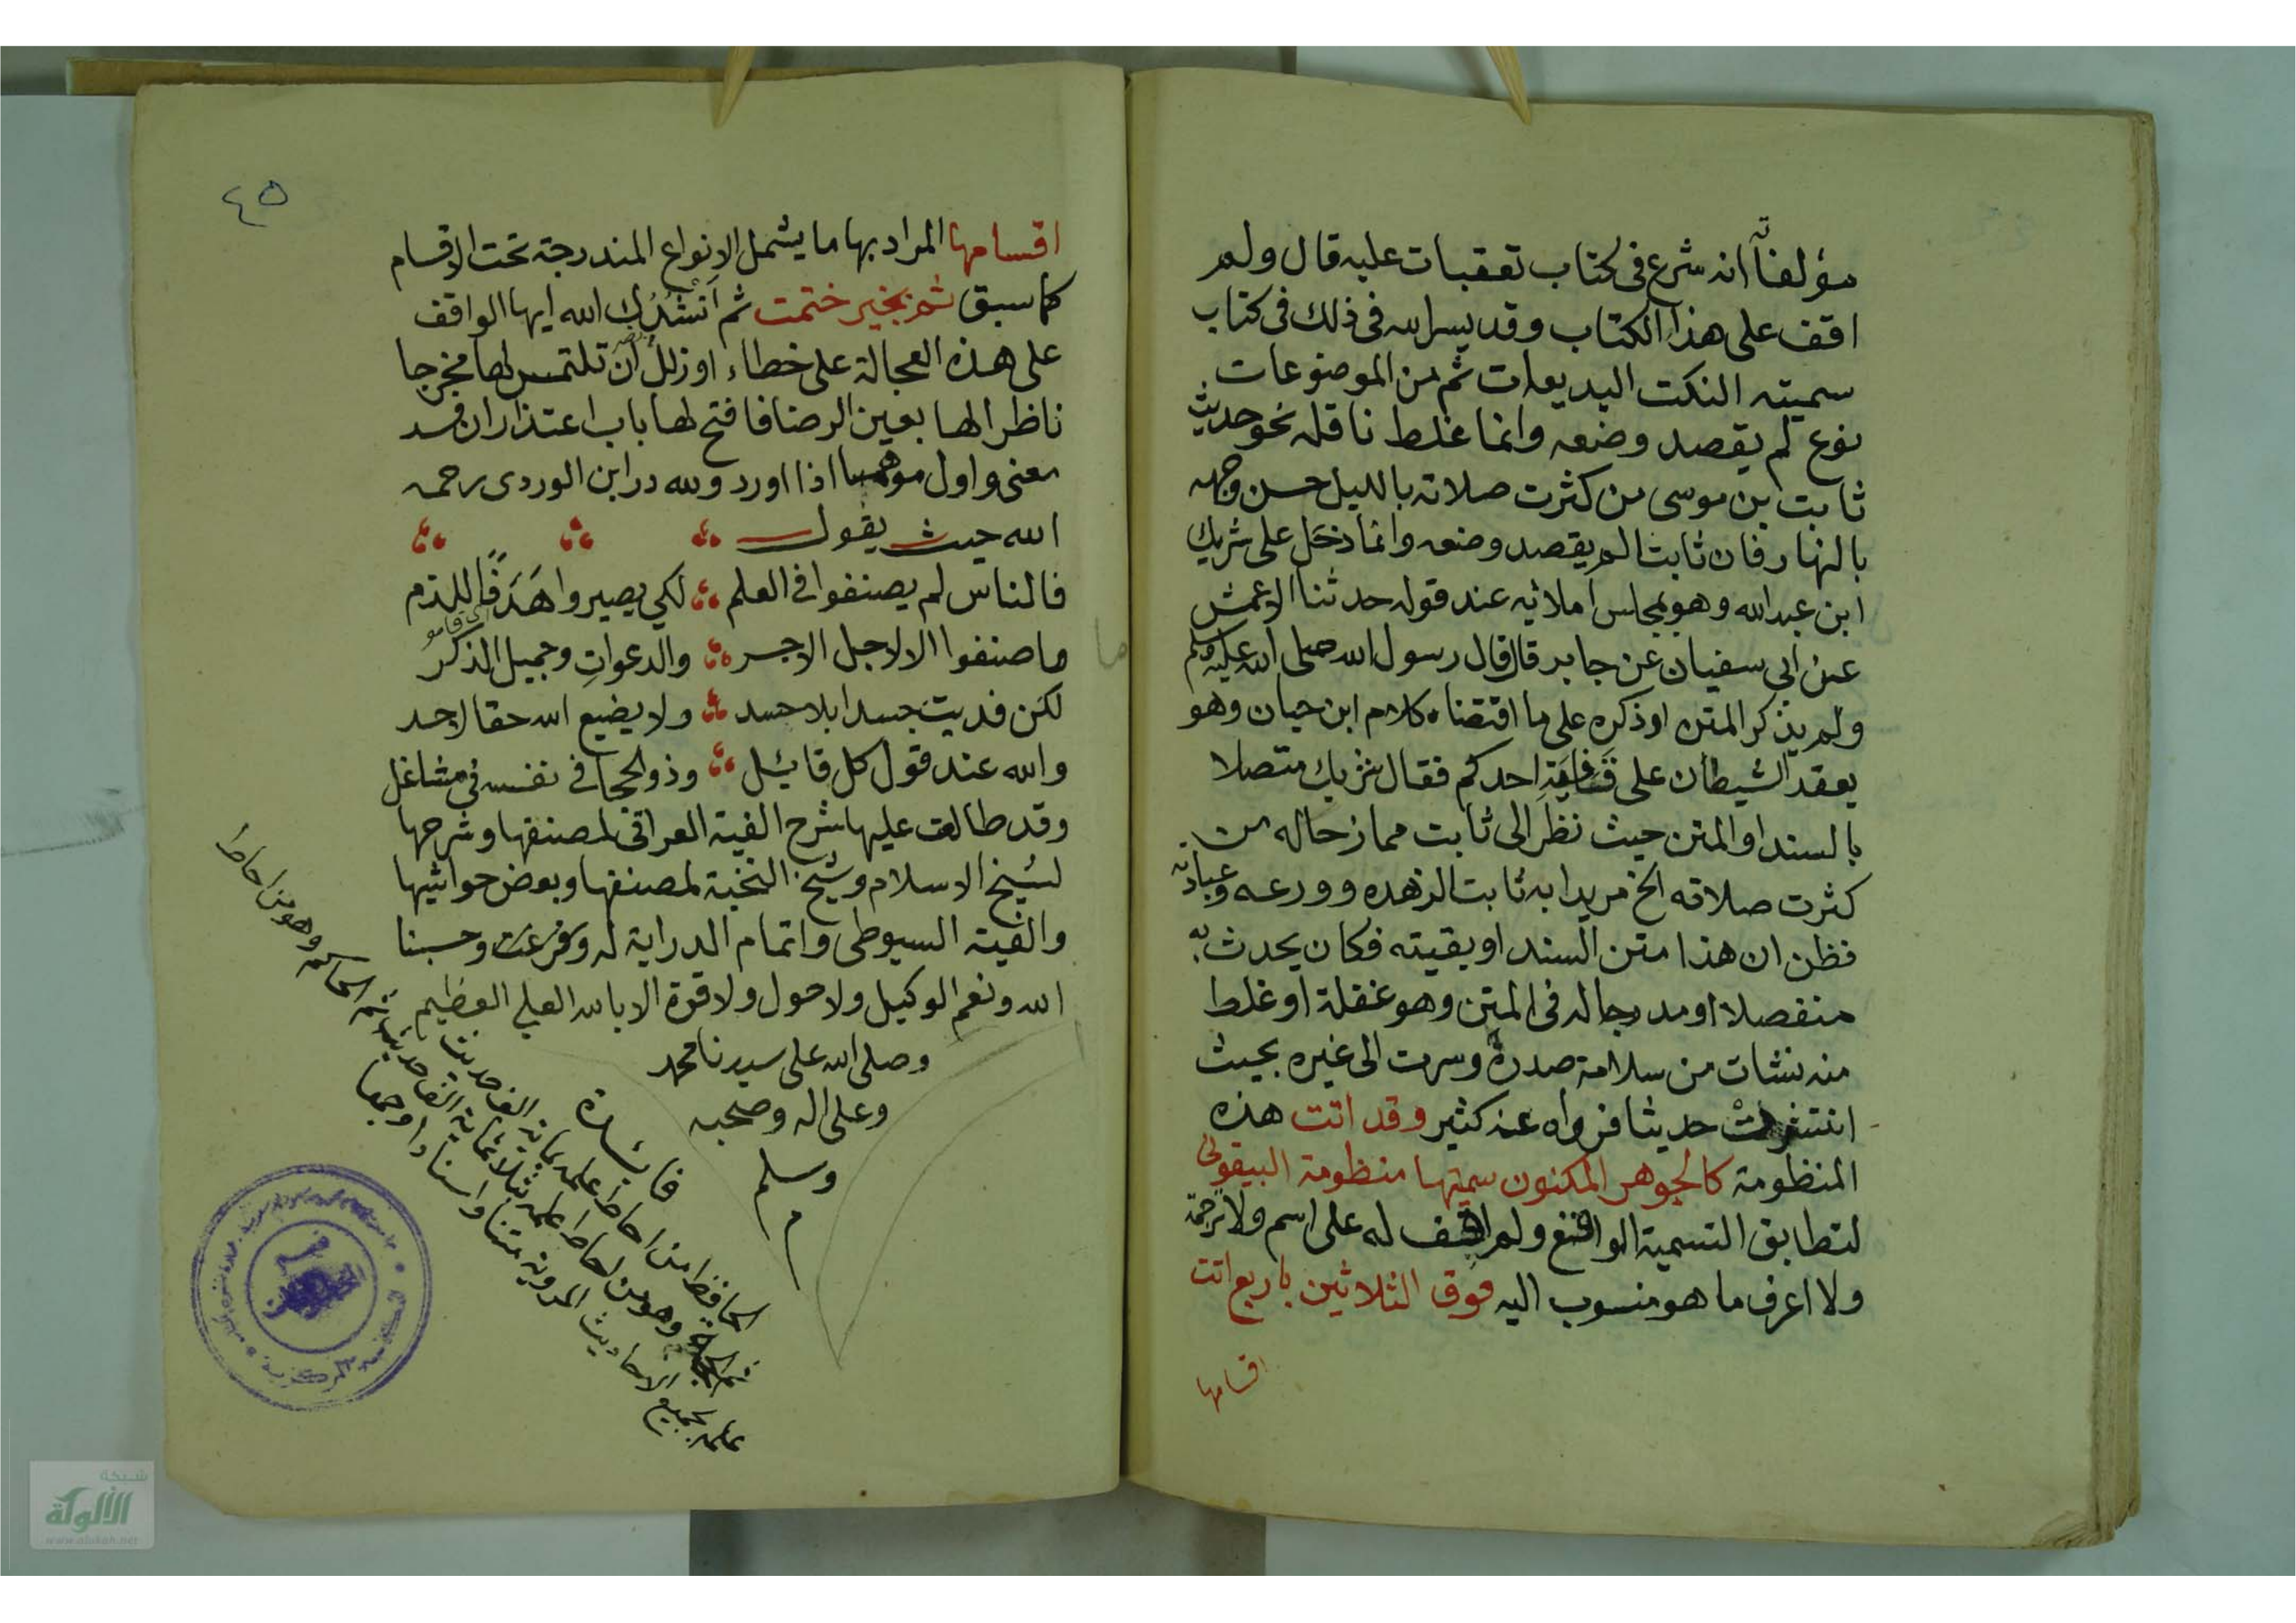 مؤلفاته انه شرع فى كتاب تعقبات عليه قال ولم
اقف على هذا الكتاب وقد يسر الله فى ذلك فى كتاب
سميته النكت البديعات ثم من الموضوعات
نوع لم يقصد وضعه وانما غلط ناقله نحو حديث
ثابت بن موسى من كثرت صلاته بالليل حسن وجهه
بالنهار فان ثابتا لم يقصد وضعه وانما دخل على شريك
ابن عبد الله وهو بمجلس املائه عند قوله حدثنا الاعمش
عن ابى سفيان عن جابر قال قال رسول الله صلى الله عليه وسلم
ولم يذكر المتن او ذكره على ما اقتضاه كلام ابن حبان وهو
يعقد الشيطان على قافية احدكم فقال شريك متصلا
بالسند او المتن حيث نظر الى ثابت ممازحا له من
كثرت صلاته الخ مريدا به ثابت لزهده وورعه وعبادته
فظن ان هذا متن السند او بقيته فكان يحدث به
منفصلا او مدرجا له فى المتن وهو غفلة او غلط
منه نشات من سلامة صدره وسرت الى غيره بحيث
انتشرت حديثا فرواه عنه كثير وقد اتت هذه
المنظومة كالجوهر المكنون سميتها منظومة البيقونى
لتطابق التسمية الواقع ولم اقف له على اسم ولا ترجمة
ولا اعرف ما هو منسوب اليه فوق الثلاثين باربع اتت
اقسامها
٤٥
اقسامها المراد بها ما يشمل الانواع المندرجة تحت الاقسام
كما سبق ثم بخير ختمت ثم اَنْشُدُك الله ايها الواقف
على هذه العجالة على خطاء او زلل ان تلتمس لها مخرجا
ناظرا لها بعين الرضا فافتح لها باب اعتذار ان فسد
معنى واول موهما اذا اورد ولله در ابن الوردى رحمه
الله حيث يقول
فالناس لم يصنفوا فى العلم لكى يصيروا هَدَفًا للذم
ما صنفوا الا لاجل الاجر والدعواتِ وجميل الذكر
لكن فديت جسدا بلا حسد ولا يضيع الله حقا لاحد
والله عند قول كل قائل وذو الحجا فى نفسه فى مشاغل
وقد طالعت عليها شرح الفية العراقى لمصنفها وشرحها
لشيخ الاسلام وشرح النخبة لمصنفها وبعض حواشيها
والفية السيوطى واتمام الدراية له وفرغت وحسبنا
الله ونعم الوكيل ولا حول ولا قوة الا بالله العلي العظيم
وصلى الله على سيدنا محمد
وعلى اله وصحبه
وسلم
م
فائدة
الحافظ من احاط علمه بماية الف حديث
ثم الحجة وهو من احاط علمه بثلاثماية الف حديث ثم الحاكم وهو من احاط
علمه بجميع الاحاديث المروية متنا واسنادا
شبكة
الألوكة
www.alukah.net